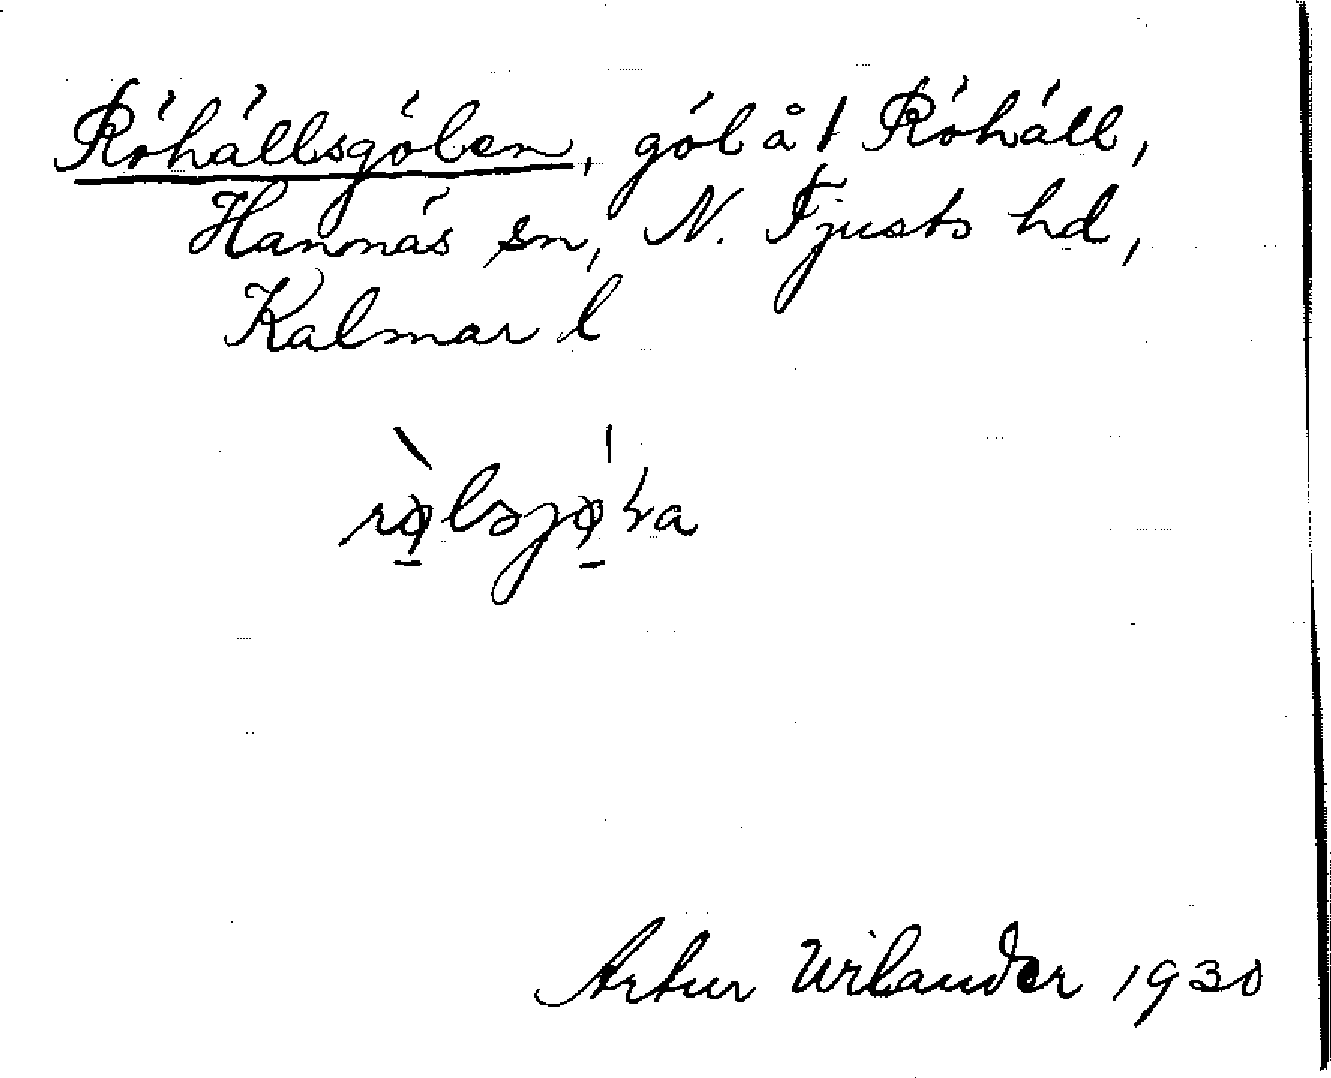 Röhällsgölen, göl å 1 Röhäll,
Hannäs sn, N. Tjusts hd,
Kalmar l
Artur Wilander 1930